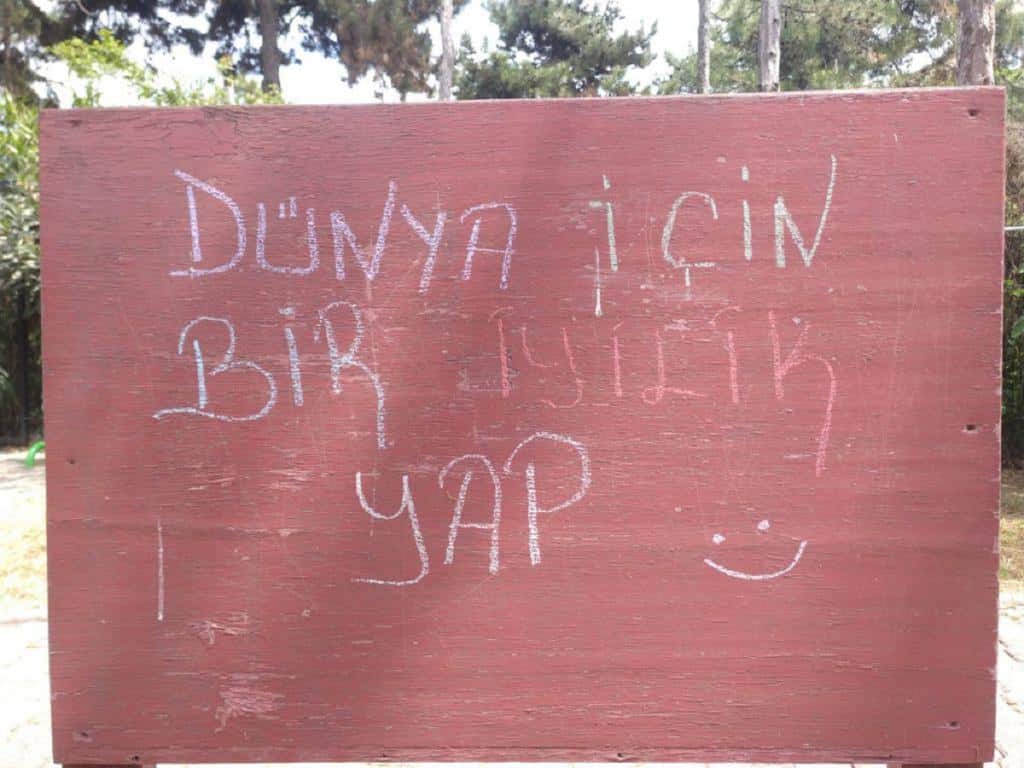 DÜNYA İÇİN
BİR İYİLİK
YAP :)